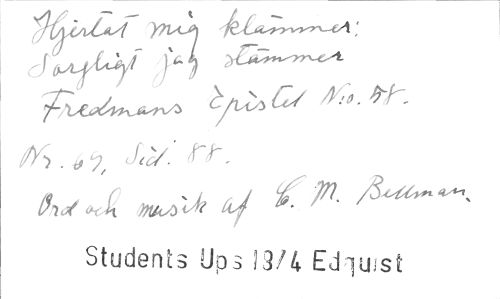 Hjertat mig klämmer;
Sorgligt jag stämmer
Fredmans Epistel N:o. 58.
Nr. 69, Sid. 88.
Ord och musik af C. M. Bellman.
Students Ups 18/4 Edquist